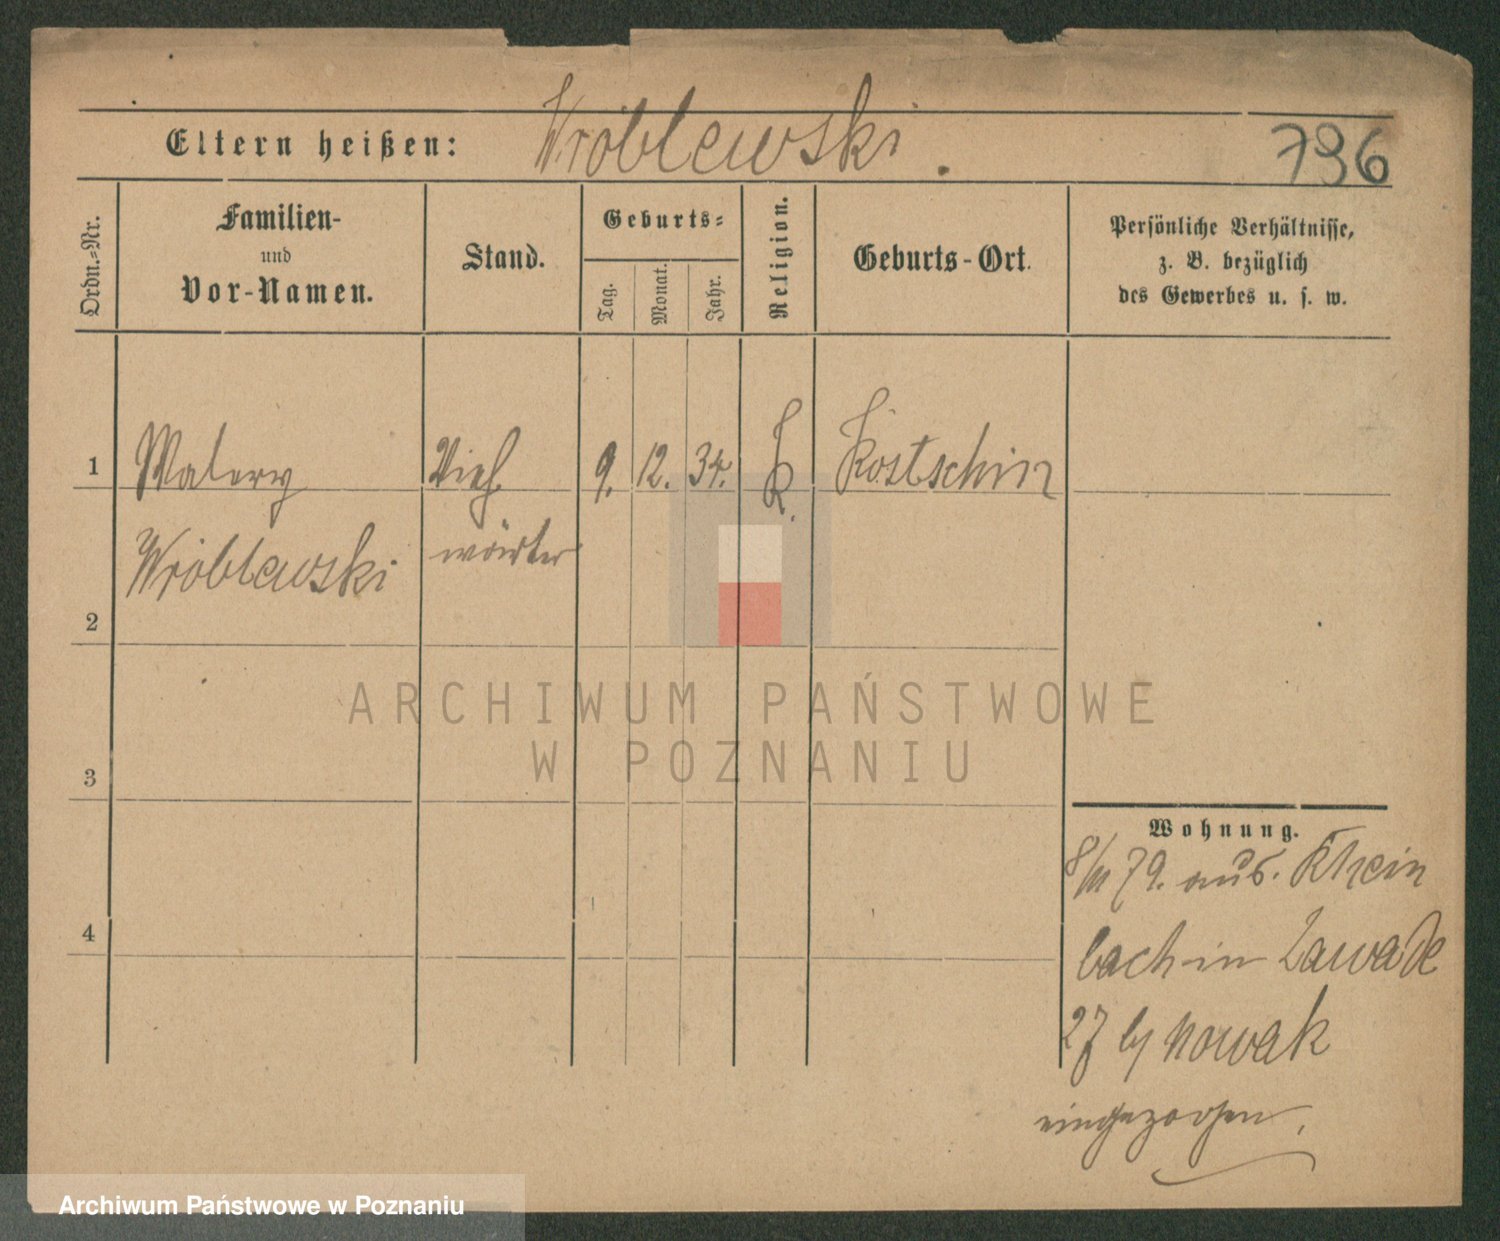 Eltern heißen: Wróblewski.
796
Ordn.-Nr.
Familien-
und
Vor-Namen.
Stand.
Geburts-
Tag.
Monat.
Jahr.
Religion.
Geburts-Ort.
Persönliche Verhältnisse,
z. B. bezüglich
des Gewerbes u. s. w.
1 Walery Vieh 9. 12. 34. K. Kostschin
Wróblewski wärter
2
3
4
Wohnung.
79. aus. Rhein
bach in Zawade
27 by Nowak
eingezogen.
ARCHIWUM PAŃSTWOWE
W POZNANIU
Archiwum Państwowe w Poznaniu